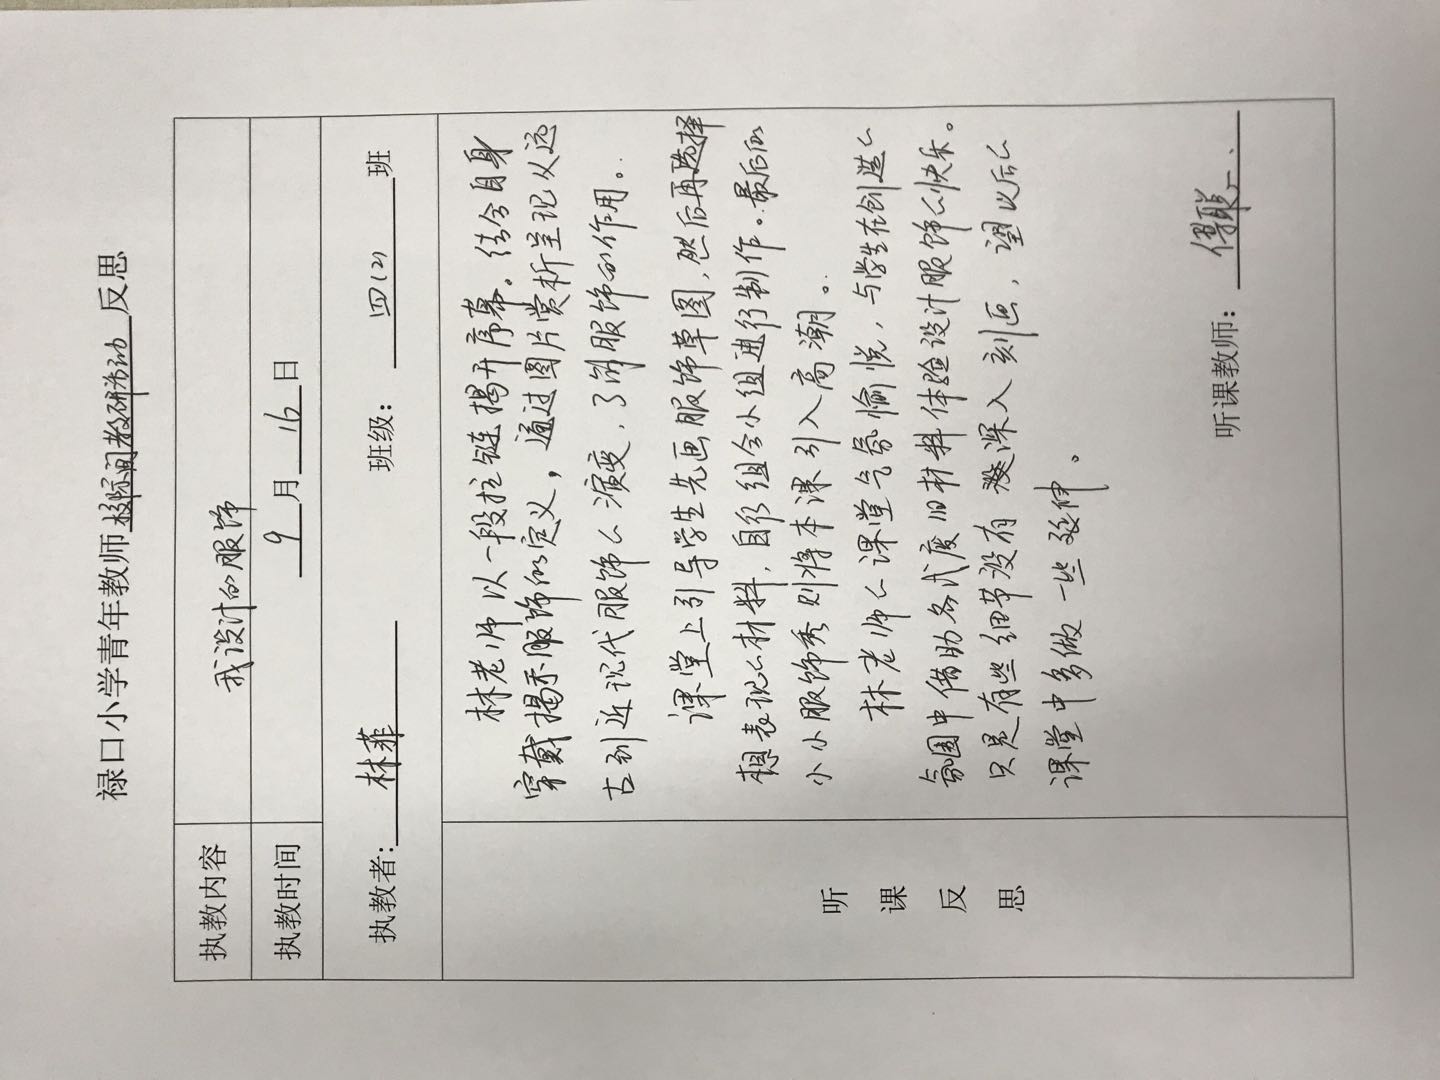 禄口小学青年教师校际间教研活动反思
执教内容 我设计的服饰
执教时间 9月16日
执教者：林菲 班级：四(2)班
听课反思
林老师以一段拉链揭开序幕。结合自身
穿戴揭示服饰的定义，通过图片赏析呈现从远
古到近现代服饰的演变，了解服饰的作用。
课堂上引导学生先画服饰草图，然后再选择
想表现的材料，自行组合小组进行制作。最后的
小小服饰秀则将本课引入高潮。
林老师的课堂气氛愉悦，与学生在创造的
氛围中借助各式废旧材料体验设计服饰的快乐。
只是有些细节没有深入刻画，望以后的
课堂中多做一些延伸。
听课教师：